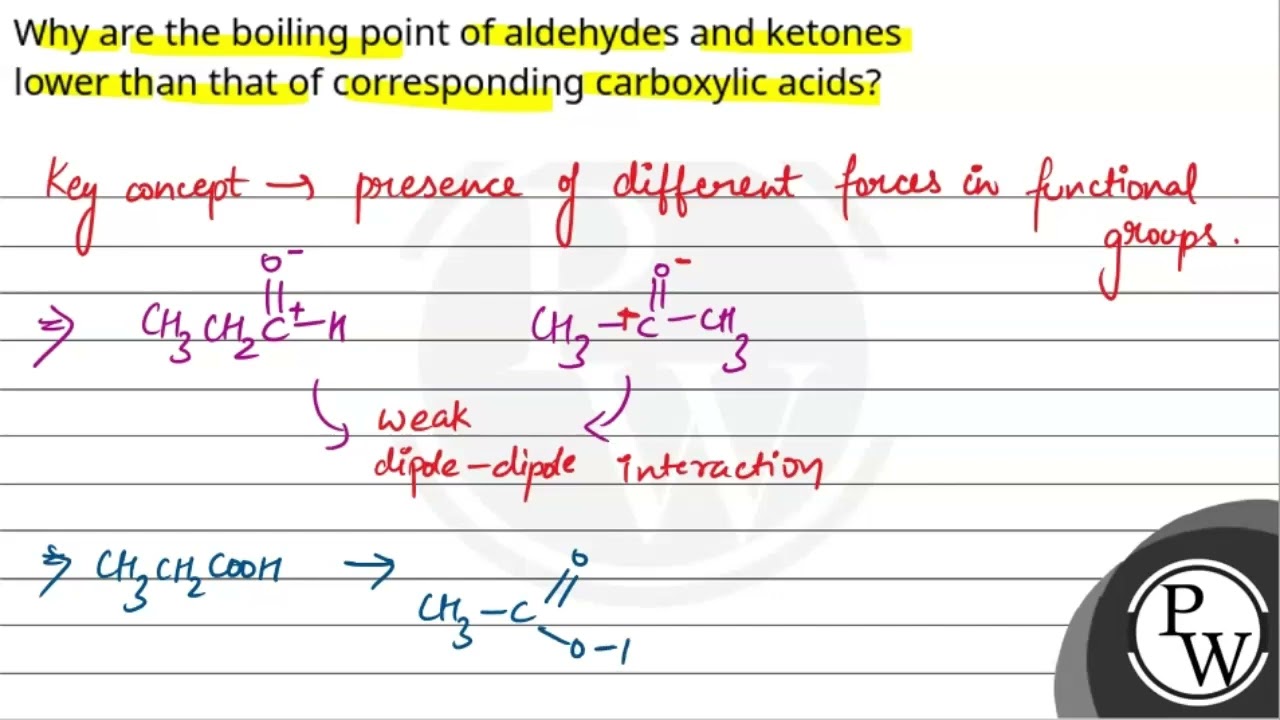 Why are the boiling point of aldehydes and ketones
lower than that of corresponding carboxylic acids?
Key concept → presence of different forces in functional
groups.
O⁻ O⁻
|| ||
⇒ CH₃ CH₂ C⁺ – H CH₃ – ⁺C – CH₃
weak
dipole-dipole interaction
⇒ CH₃CH₂COOH → O
//
CH₃ – C
\
O – I
P
W
PW